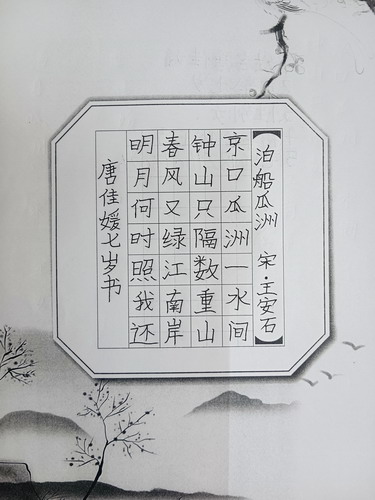 泊船瓜洲 宋·王安石
京口瓜洲一水间
钟山只隔数重山
春风又绿江南岸
明月何时照我还
唐佳媛七岁书